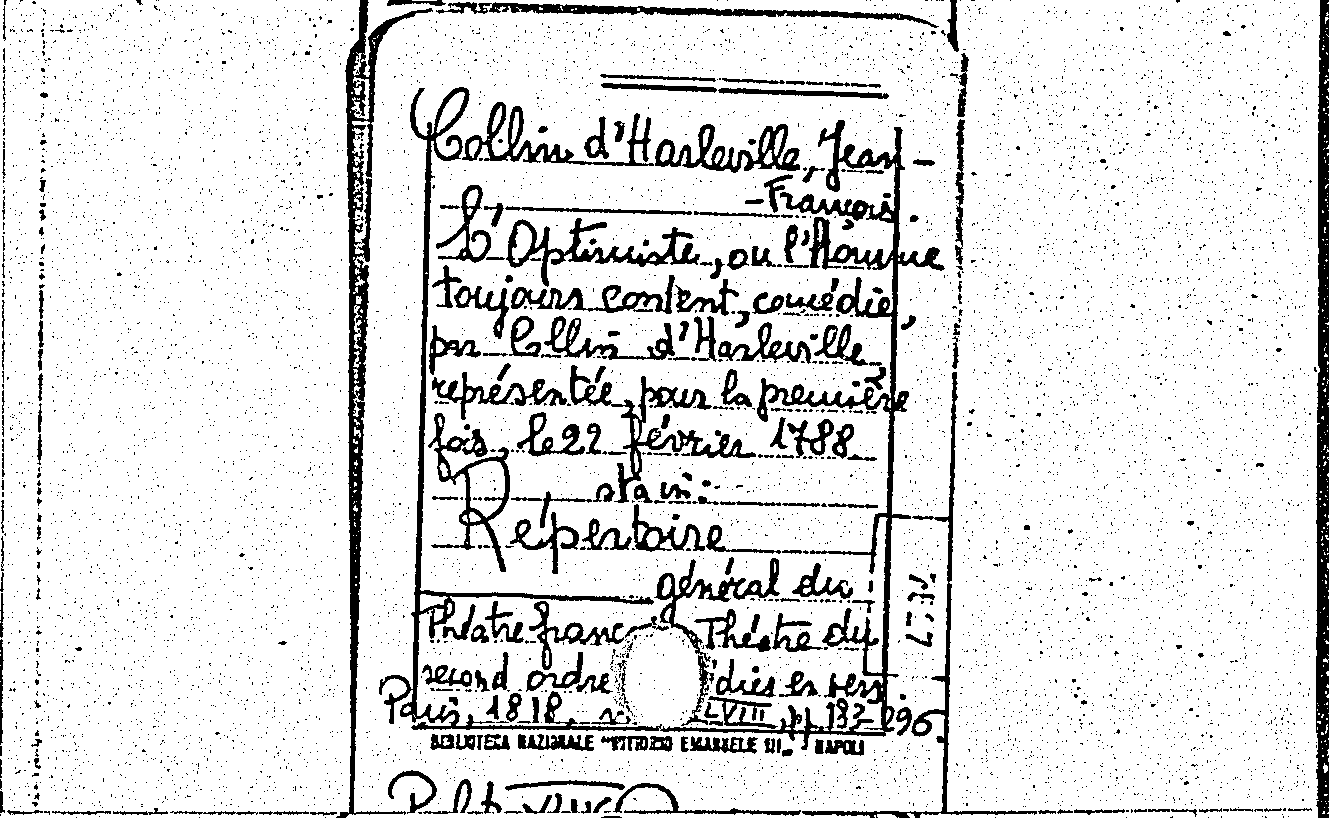 Collin d'Harleville, Jean-
-François.
L'Optimiste, ou l'Homme
toujours content, comédie,
par Collin d'Harleville,
représentée, pour la première
fois, le 22 février 1788
sta in:
Répertoire
général du
Théâtre franc Théâtre du
second ordre dies en vers.
Paris, 1818, LVIII, pp. 183-296.
BIBLIOTECA NAZIONALE "VITTORIO EMANUELE III" NAPOLI